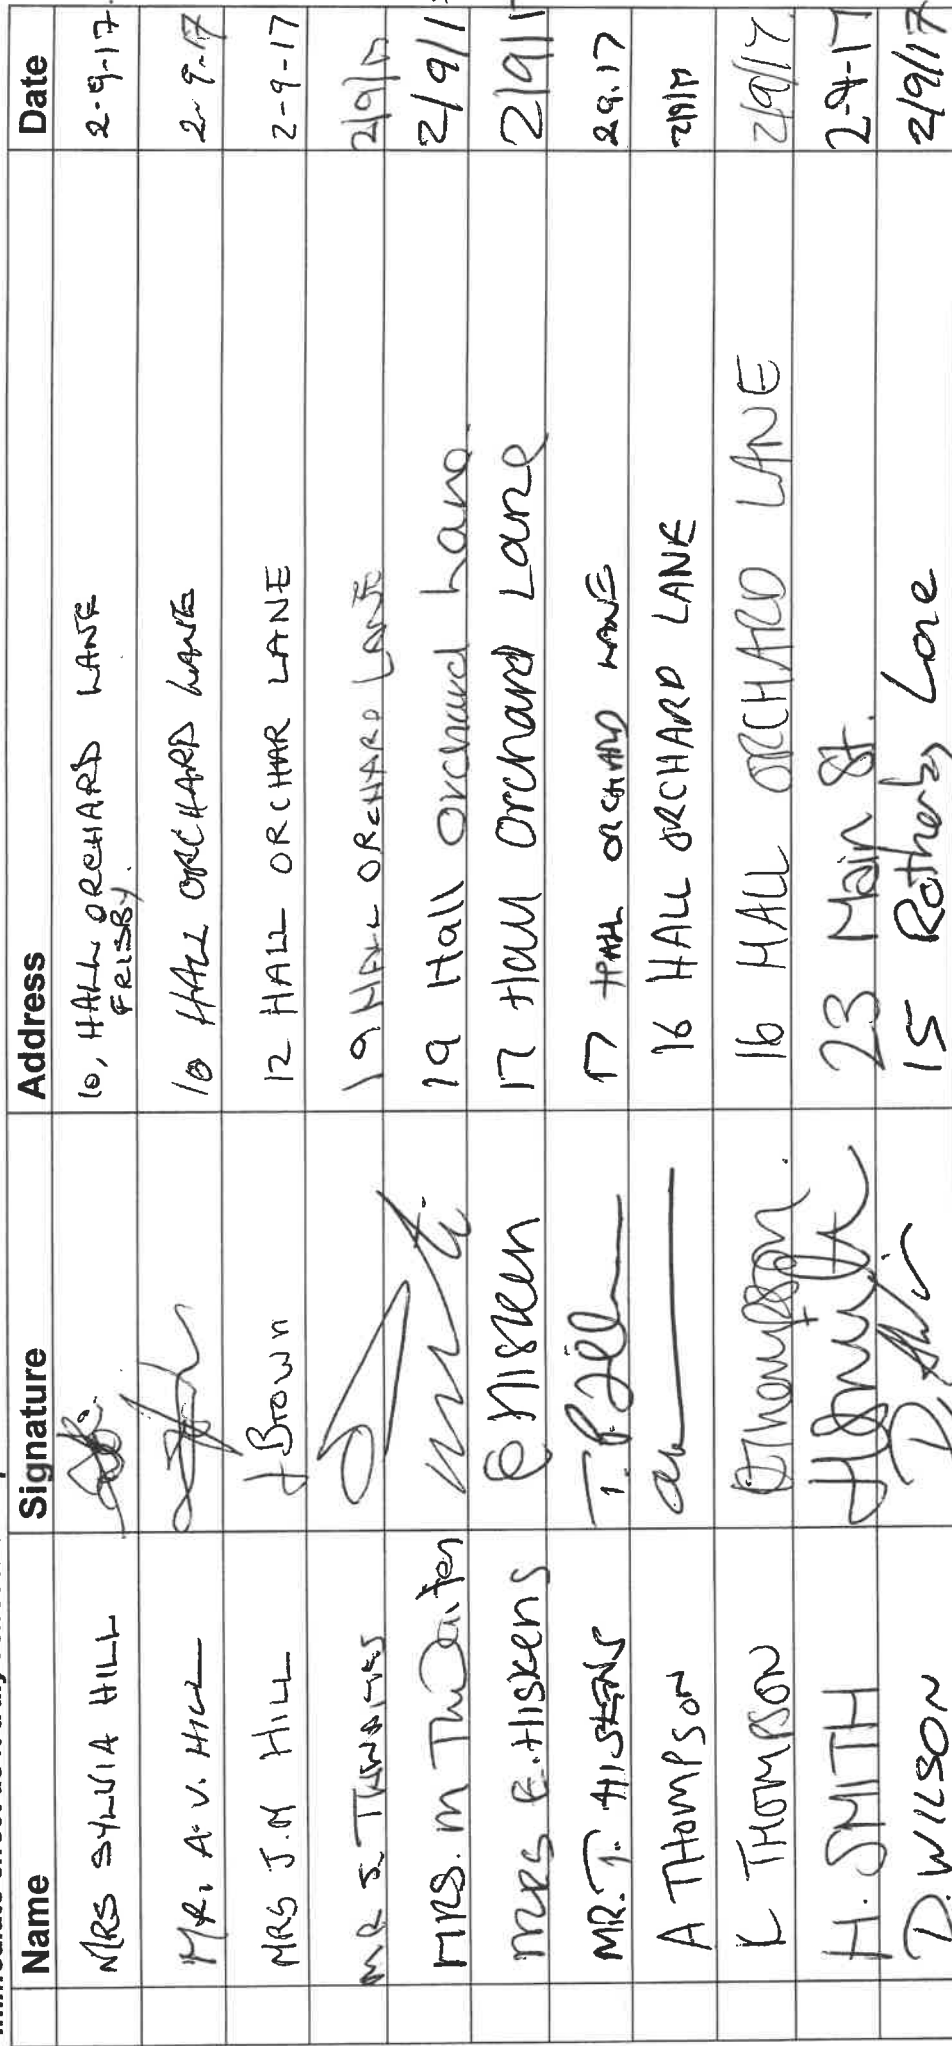 Name Signature Address Date
MRS SYLVIA HILL 10, HALL ORCHARD LANE 2-9-17
FRISBY.
MR. A. V. HILL 10 HALL ORCHARD LANE 2-9-17
MRS J.M HILL J Brown 12 HALL ORCHAR LANE 2-9-17
MR S. THWAITES 19 HALL ORCHARD LANE 2/9/17
MRS. M Thwaites 19 Hall Orchard Lane. 2/9/1
MRS E. HISKENS E Hisken 17 Hall Orchard Lane 2/9/1
MR. T. HISKENS 17 HALL ORCHARD LANE 2.9.17
A THOMPSON 16 HALL ORCHARD LANE 2/9/17
K THOMPSON Thompson. 16 HALL ORCHARD LANE 2/9/17
H. SMITH H Smith 23 Main St. 2-9-17
D. WILSON 15 Rotherby Lane 2/9/17